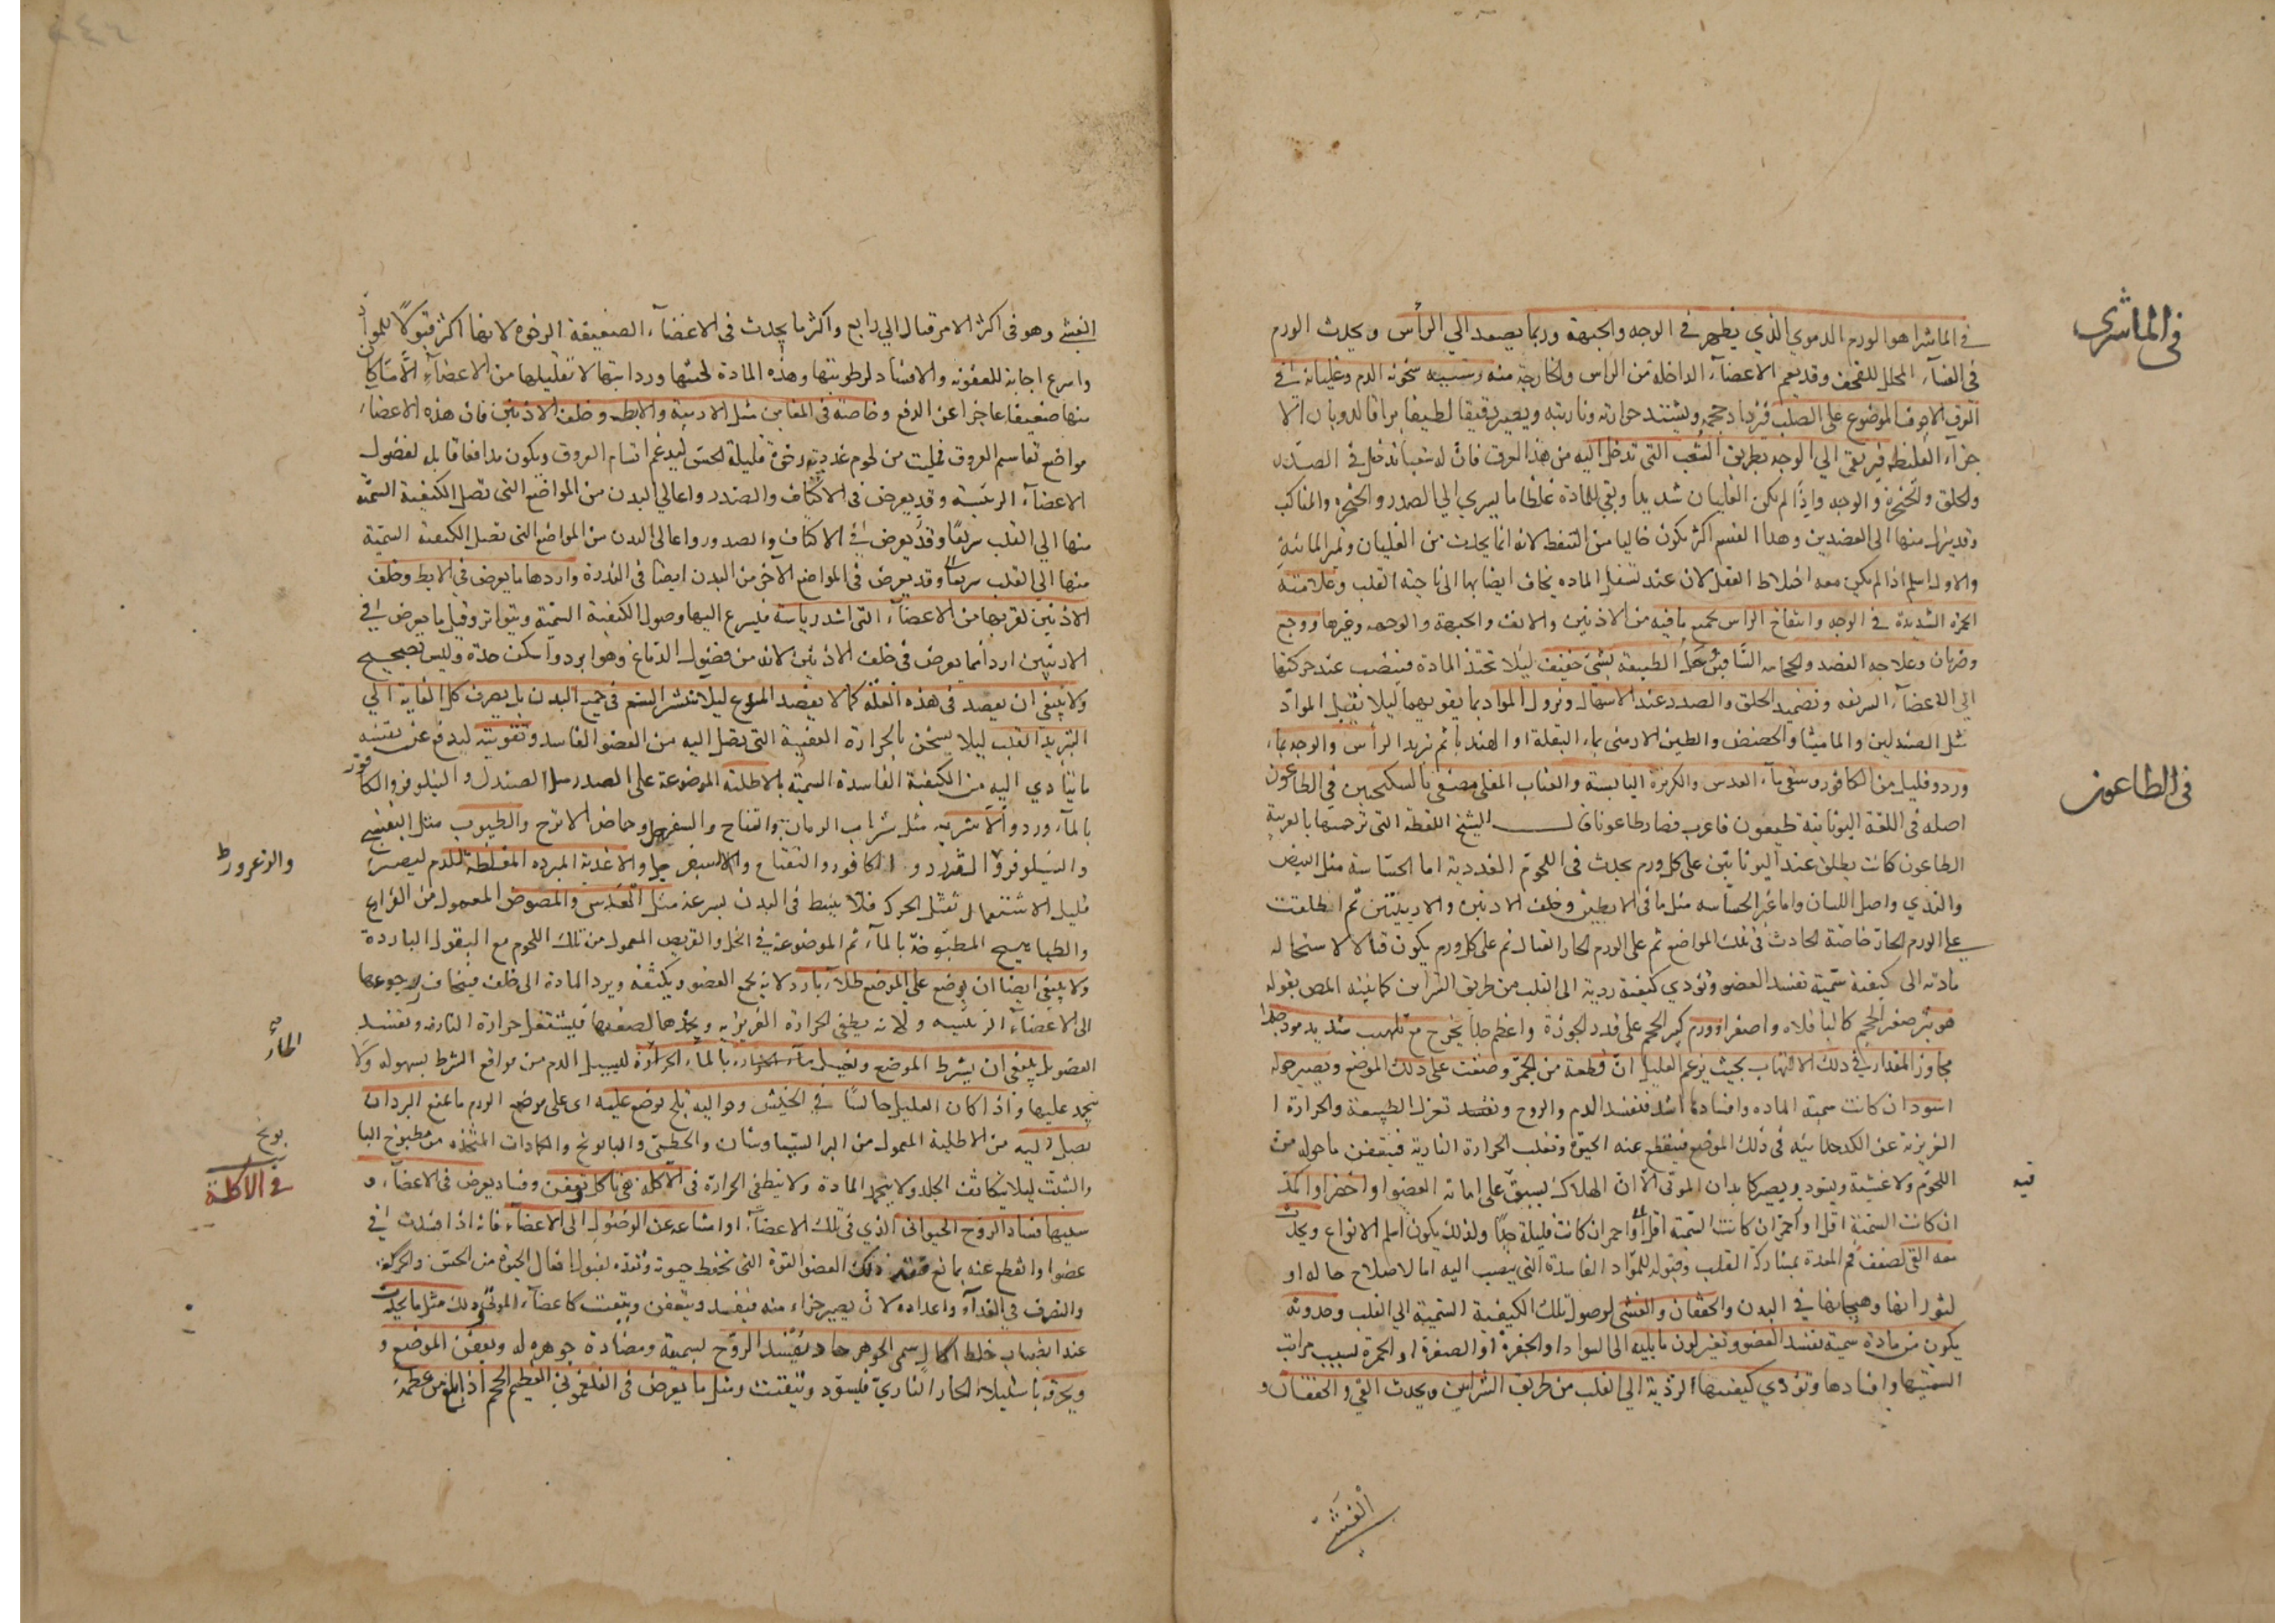 في الماشرى
في الماشرا هو الورم الدموي الذي يظهر في الوجه والجبهة وربما يصعد الي الرأس ويحدث الورم
في الغشآء المجلل للقحف وقد يعم الاعضآء الداخلة من الرأس والخارجة منه وسببه سخونة الدم وغليانه في
العرق الاجوف الموضوع على الصلب فيزداد حجمه ويشتد حرارته وناريته ويصير رقيقا لطيفا براقا لذوبان
اجزآء الغليظة فيرتقى الي الوجه بطريق الشعب التي تدخل اليه من هذا العرق فان له شعبا تدخل في الصدر
والحلق والحنجرة والوجه واذا لم يكن الغليان شديدا وبقي للمادة غلظا ما يسري الي الصدر والحنجره والمناكب
وقد ينزل منها الى العضدين وهذا القسم اكثر يكون خاليا من التنفط لانه انما يحدث من الغليان وتميز المائية
والاول اسلم اذا لم يكن معه اختلاط العقل لان عند تسفل الماده يخاف ايضا بها الى ناحية القلب وعلامته
الحمرة الشديدة في الوجه وانتفاخ الرأس بجميع ما فيه من الاذنين والانف والجبهة والوجه وغيرها ووجع
وضربان وعلاجه الفصد والحجامه الساقين حل الطبيعة بشئ خفيف ليلا تحتد المادة فينصب عند حركتها
الي الاعضآء الشريفه وتضميد الحلق والصدر عند الاسهال ونزول المواد بما يقويهما ليلا تقبل المواد
مثل الصندلين والماميثا والحضض والطين الارمني بماء البقلة او الهندبا ثم تبريد الرأس والوجه بماء
ورد وقليل من الكافور وسقي مآء العدس والكزبرة اليابسة والعناب المغلى مصفى بالسكنجبين في الطاعون
في الطاعون
اصله في اللغة اليونانية طيعون فاعرب فصار طاعونا قال الشيخ اللفظة التي ترجمتها بالعربية
الطاعون كانت يطلق عند اليونانيين على كل ورم يحدث في اللحوم الغددية اما الحساسة مثل البيض
والثدي واصل اللسان واما غير الحساسه مثل ما في الابطين وخلف الاذنين والاربيتين ثم اطلقت
على الورم الحار خاصة الحادث في تلك المواضع ثم على الورم الحار القتال ثم على كل ورم يكون قتالا لاستحالة
مادته الى كيفية سمية تفسد العضو وتؤدي كيفية ردية الى القلب من طريق الشرايين كما بينه المص بقوله
هو بثر صغير الحجم كالباقلاه واصغر او ورم كبير الحجم على قدر الجوزة واعظم جدا يخرج مع تلهيب شديد موذ جدا
مجاوز المقدار في ذلك الالتهاب بحيث يزعم العليل ان قطعة من الجمر وضعت على ذلك الموضع ويصير حوله
اسود ان كانت سمية الماده وافسادها اشد فتفسد الدم والروح وتفسد تعزل الطبيعة والحرارة ا
الغريزية عن الكدخدائيه في ذلك الموضع فينقطع عنه الحيوة وتغلب الحرارة النارية فيتعفن ما حوله من
اللحوم والاغشية ويسود ويصير كابدان الموتى الا ان الهلاك يسبق على اماتة العضوا او اخضر او اكمد
فيه
ان كانت السمية اقل او احمر ان كانت السمية اقل او احمر ان كانت قليلة جدا ولذلك يكون اسلم الانواع ويحدث
معه القئ لضعف فم المعدة بمشاركة القلب وقبوله للمواد الفاسدة التي ينصب اليه اما لاصلاح حاله او
لثورانها وهيجانها في البدن والخفقان والغشى لوصول تلك الكيفية السمية الي القلب وحدوثه
يكون من مادة سمية تفسد العضو وتغير لون ما يليه الى السواد او الخضرة او الصفرة او الحمرة بسبب مراتب
السميتها وافسادها وتؤدي كيفيتها الردية الي القلب من طريق الشرايين ويحدث القئ والخفقان و
الغشي
الغشي وهو في اكثر الامر قتال الي رابع واكثر ما يحدث في الاعضآء الضعيفة الرخوة لانها اكثر قبولًا للمواد
واسرع اجابة للعفونه والافساد لرطوبتها وهذه المادة لخبثها وردائتها لا تقبلها من الاعضآء الا ما كان
منها ضعيفا عاجزا عن الدفع وخاصة في المغابن مثل الاربية والابط وخلف الاذنين فان هذه الاعضاء
مواضع تقاسيم العروق فمليت من لحوم غددية رخوة قليلة الحس ليدعم اقسام العروق ويكون مدافعا قابلة لفضول
الاعضآء الرئيسة وقد يعرض في الاكتاف والصدر واعالي البدن من المواضع التي تصل الكيفية السمية
منها الي القلب سريعًا وقد يعرض في الاكتاف والصدور واعالي البدن من المواضع التي تصل الكيفية السمية
منها الى القلب سريعًا وقد يعرض في المواضع الآخر من البدن ايضا في الندرة واردها ما يعرض في الابط وخلف
الاذنين لقربهما من الاعضآء التي اشد رياسة فيسرع اليها وصول الكيفية السمية ويتواتر وقيل ما يعرض في
الاربيتين اردأ مما يعرض في خلف الاذنين لانه من فضول الدماغ وهو ابرد واسكن حدة وليس بصحيح
ولا ينبغي ان يفصد في هذه العلة كما لا يفصد الملسوع ليلا تنتشر السم في جميع البدن بل يصرف كل العناية الي
التبريد القلب ليلا يسخن بالحرارة العفنية التي تصل اليه من العضو الفاسد وتقويته ليدفع عن نفسه
ما يتادي اليه من الكيفية الفاسدة السمية بالاطلية الموضوعة على الصدر مثل الصندل والنيلوفر والكافور
بالمآء ورد والاشربه مثل شراب الرمان والتفاح والسفرجل وحماض الاترج والطيوب مثل البنفسج
والنيلوفر والورد والكافور والتفاح والسفرجل والاغذية المبرده المغلظة للدم ليصير
والزعرور
قليل الاشتعال ثقيل الحركه فلا ينبسط في البدن بسرعة مثل العدس والمصوص المعمول من الفراريج
والطباهيج المطبوخة بالمآء ثم الموضوعة في الخل والقريص المعمول من تلك اللحوم مع البقول الباردة
ولا ينبغي ايضا ان يوضع علي الموضع طلاء بارد لانه يجمع العضو ويكثفه ويرد المادة الى خلف فيخاف رجوعها
الى الاعضآء الرئيسه ولانه يطفي الحرارة الغريزيه ويخمدها لضعفها فيشتعل حرارة الناريه وتفسد
العضو بل ينبغي ان يشرط الموضع ويغسل بالماء الحار ليسيل الدم من مواقع الشرط بسهوله ولا
الحار
يجمد عليها واذا كان العليل جالسا في الخيش وحواليه ثلج يوضع عليه اى على موضع الورم ما يمنع البرد ان
يصل اليه من الاطلية المعمول من البرالسياوشان والخطمى والبابونج والكمادات المتخذه من مطبوخ البا
بونج
والشبث ليلا يتكاثف الجلد ولا يجمد المادة ولا ينطفى الحرارة في الآكلة هي تآكل وتعفن وفساد يعرض في الاعضآء و
في الآكلة
سببها فساد الروح الحيواني الذي في تلك الاعضآء او امتناعه عن الوصول الى الاعضآء فانه اذا افسدت في
عضوا وانقطع عنه بمانع فقد ذلك العضو القوة التي تحفظ حيوته وتعده لقبول افعال الحيوة من الحس والحركة
والتصرف في الغذآء واعداده لان يصير جزاء منه فيفسد ويتعفن ويتفتت كاعضآء الموتى وذلك مثل ما يحدث
عند انصباب خلط اكال سمي الجوهر حاد يفسد الروح بسميته ومضادة جوهره له ويعفن الموضع و
ويحرقه باستيلاء الحار الناريّ فيسود ويتفتت ومثل ما يعرض في الفلغموني العظيم الحجم اذا بلغ من عظمه